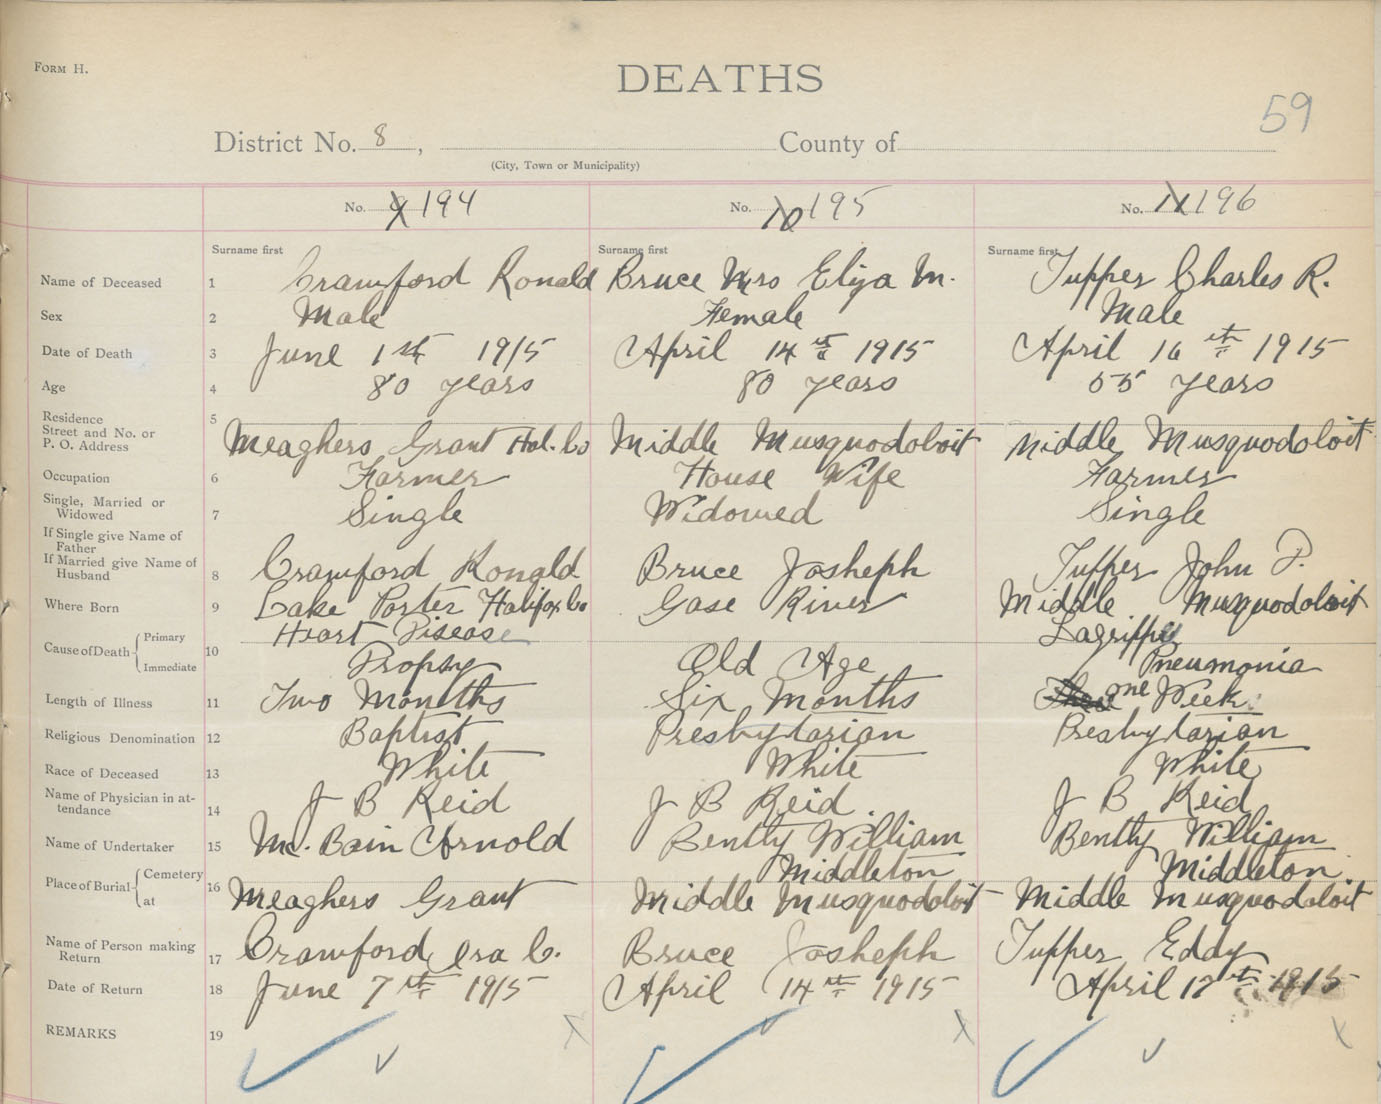 FORM H.
DEATHS
59
District No. 8, County of
(City, Town or Municipality)
No. 9 194 No. 10 195 No. 11 196
Surname first Surname first Surname first
Name of Deceased 1 Crawford Ronald Bruce Mrs Eliza M. Tupper Charles R.
Sex 2 Male Female Male
Date of Death 3 June 1st 1915 April 14th 1915 April 16th 1915
Age 4 80 years 80 years 55 years
Residence 5
Street and No. or
P. O. Address Meaghers Grant Hal. Co Middle Musquodoboit Middle Musquodoboit
Occupation 6 Farmer House Wife Farmer
Single, Married or
Widowed 7 Single Widowed Single
If Single give Name of
Father
If Married give Name of
Husband 8 Crawford Ronald Bruce Josheph Tupper John P.
Where Born 9 Lake Porter Halifax Co Gase River Middle Musquodoboit
Cause of Death Primary 10 Heart Disease Lagrippe
Immediate Dropsy Old Age Pneumonia
Length of Illness 11 Two Months Six Months one Week
Religious Denomination 12 Baptist Presbytarian Presbytarian
Race of Deceased 13 White White White
Name of Physician in at-
tendance 14 J B Reid J B Reid J B Reid
Name of Undertaker 15 Mc. Bain Arnold Bently William Bently William
Place of Burial Cemetery 16 Middleton Middleton
at Meaghers Grant Middle Musquodoboit Middle Musquodoboit
Name of Person making
Return 17 Crawford Ira C. Bruce Josheph Tupper Eddy
Date of Return 18 June 7th 1915 April 14th 1915 April 17th 1915
REMARKS 19